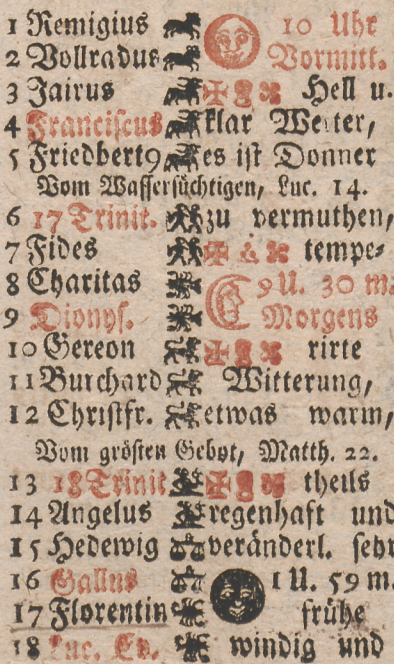 1 Remigius 10 Uhr
2 Vollradus Vormitt.
3 Jairus Hell u.
4 Franciscus klar Wetter,
5 Friedbert9 es ist Donner
Vom Wassersüchtigen, Luc. 14.
6 17 Trinit. zu vermuthen,
7 Fides tempe-
8 Charitas 9 U. 30 m.
9 Dionys. Morgens
10 Gereon rirte
11 Burchard Witterung,
12 Christfr. etwas warm,
Vom grösten Gebot, Matth. 22.
13 18 Trinit theils
14 Angelus regenhaft und
15 Hedewig veränderl. sehr
16 Gallus 1 U. 59 m.
17 Florentin frühe
18 Luc. Ev. windig und